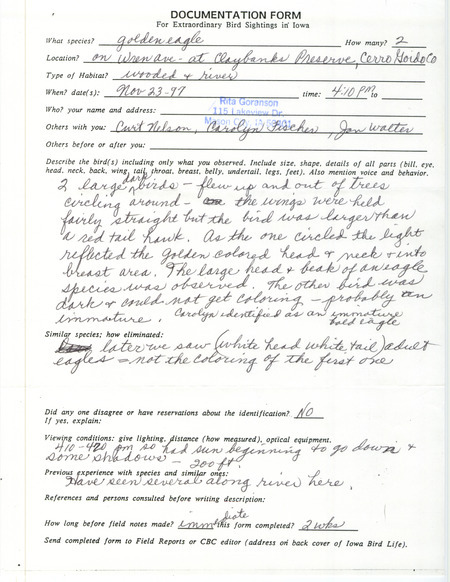 DOCUMENTATION FORM
For Extraordinary Bird Sightings in Iowa
What species? golden eagle How many? 2
Location? on Wren ave - at Claybanks Preserve, Cerro Gordo Co
Type of Habitat? wooded & river
When? date(s): Nov 23-97 time: 4:10 PM to
Who? your name and address: Rita Goranson
115 Lakeview Dr.
Mason City, IA 50401
Others with you: Curt Nelson, Carolyn Fischer, Jan Walter
Others before or after you:
Describe the bird(s) including only what you observed. Include size, shape, details of all parts (bill, eye,
head, neck, back, wing, tail, throat, breast, belly, undertail, legs, feet). Also mention voice and behavior.
2 large dark birds - flew up and out of trees
circling around - the wings were held
fairly straight but the bird was larger than
a red tail hawk. As the one circled the light
reflected the golden colored head & neck & into
breast area. The large head & beak of an eagle
species was observed. The other bird was
dark & could not get coloring - probably an
immature. Carolyn identified as an immature
bald eagle
Similar species; how eliminated:
later we saw (white head white tail) adult
eagles = not the coloring of the first one
Did any one disagree or have reservations about the identification? No
If yes, explain:
Viewing conditions: give lighting, distance (how measured), optical equipment.
410-420 pm so had sun beginning to go down &
some shadows - 200 ft.
Previous experience with species and similar ones:
Have seen several along river here.
References and persons consulted before writing description:
How long before field notes made? immediate this form completed? 2 wks
Send completed form to Field Reports or CBC editor (address on back cover of Iowa Bird Life).